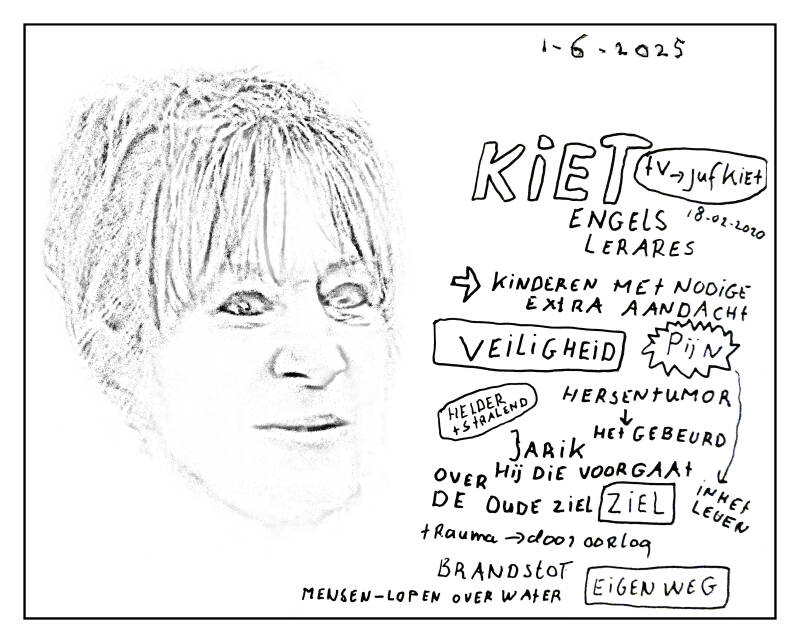 1-6-2025
KiET
tv → juf Kiet
18-02-2020
ENGELS
LERARES
→ KiNDEREN MEt NODiGE
EXtRA AANDACHt
VEiLiGHEiD
PijN
HELDER
+ StRALEND
HERSENtUMOR
↓
HEt GEBEURD
JARiK
OVER Hij DiE VOORGAAt
DE OUDE ZiEL ZiEL
iN HEt
LEVEN
tRauma → door oorlog
BRANDStOT
EiGEN WEG
MENSEN-LOPEN OVER WAtER